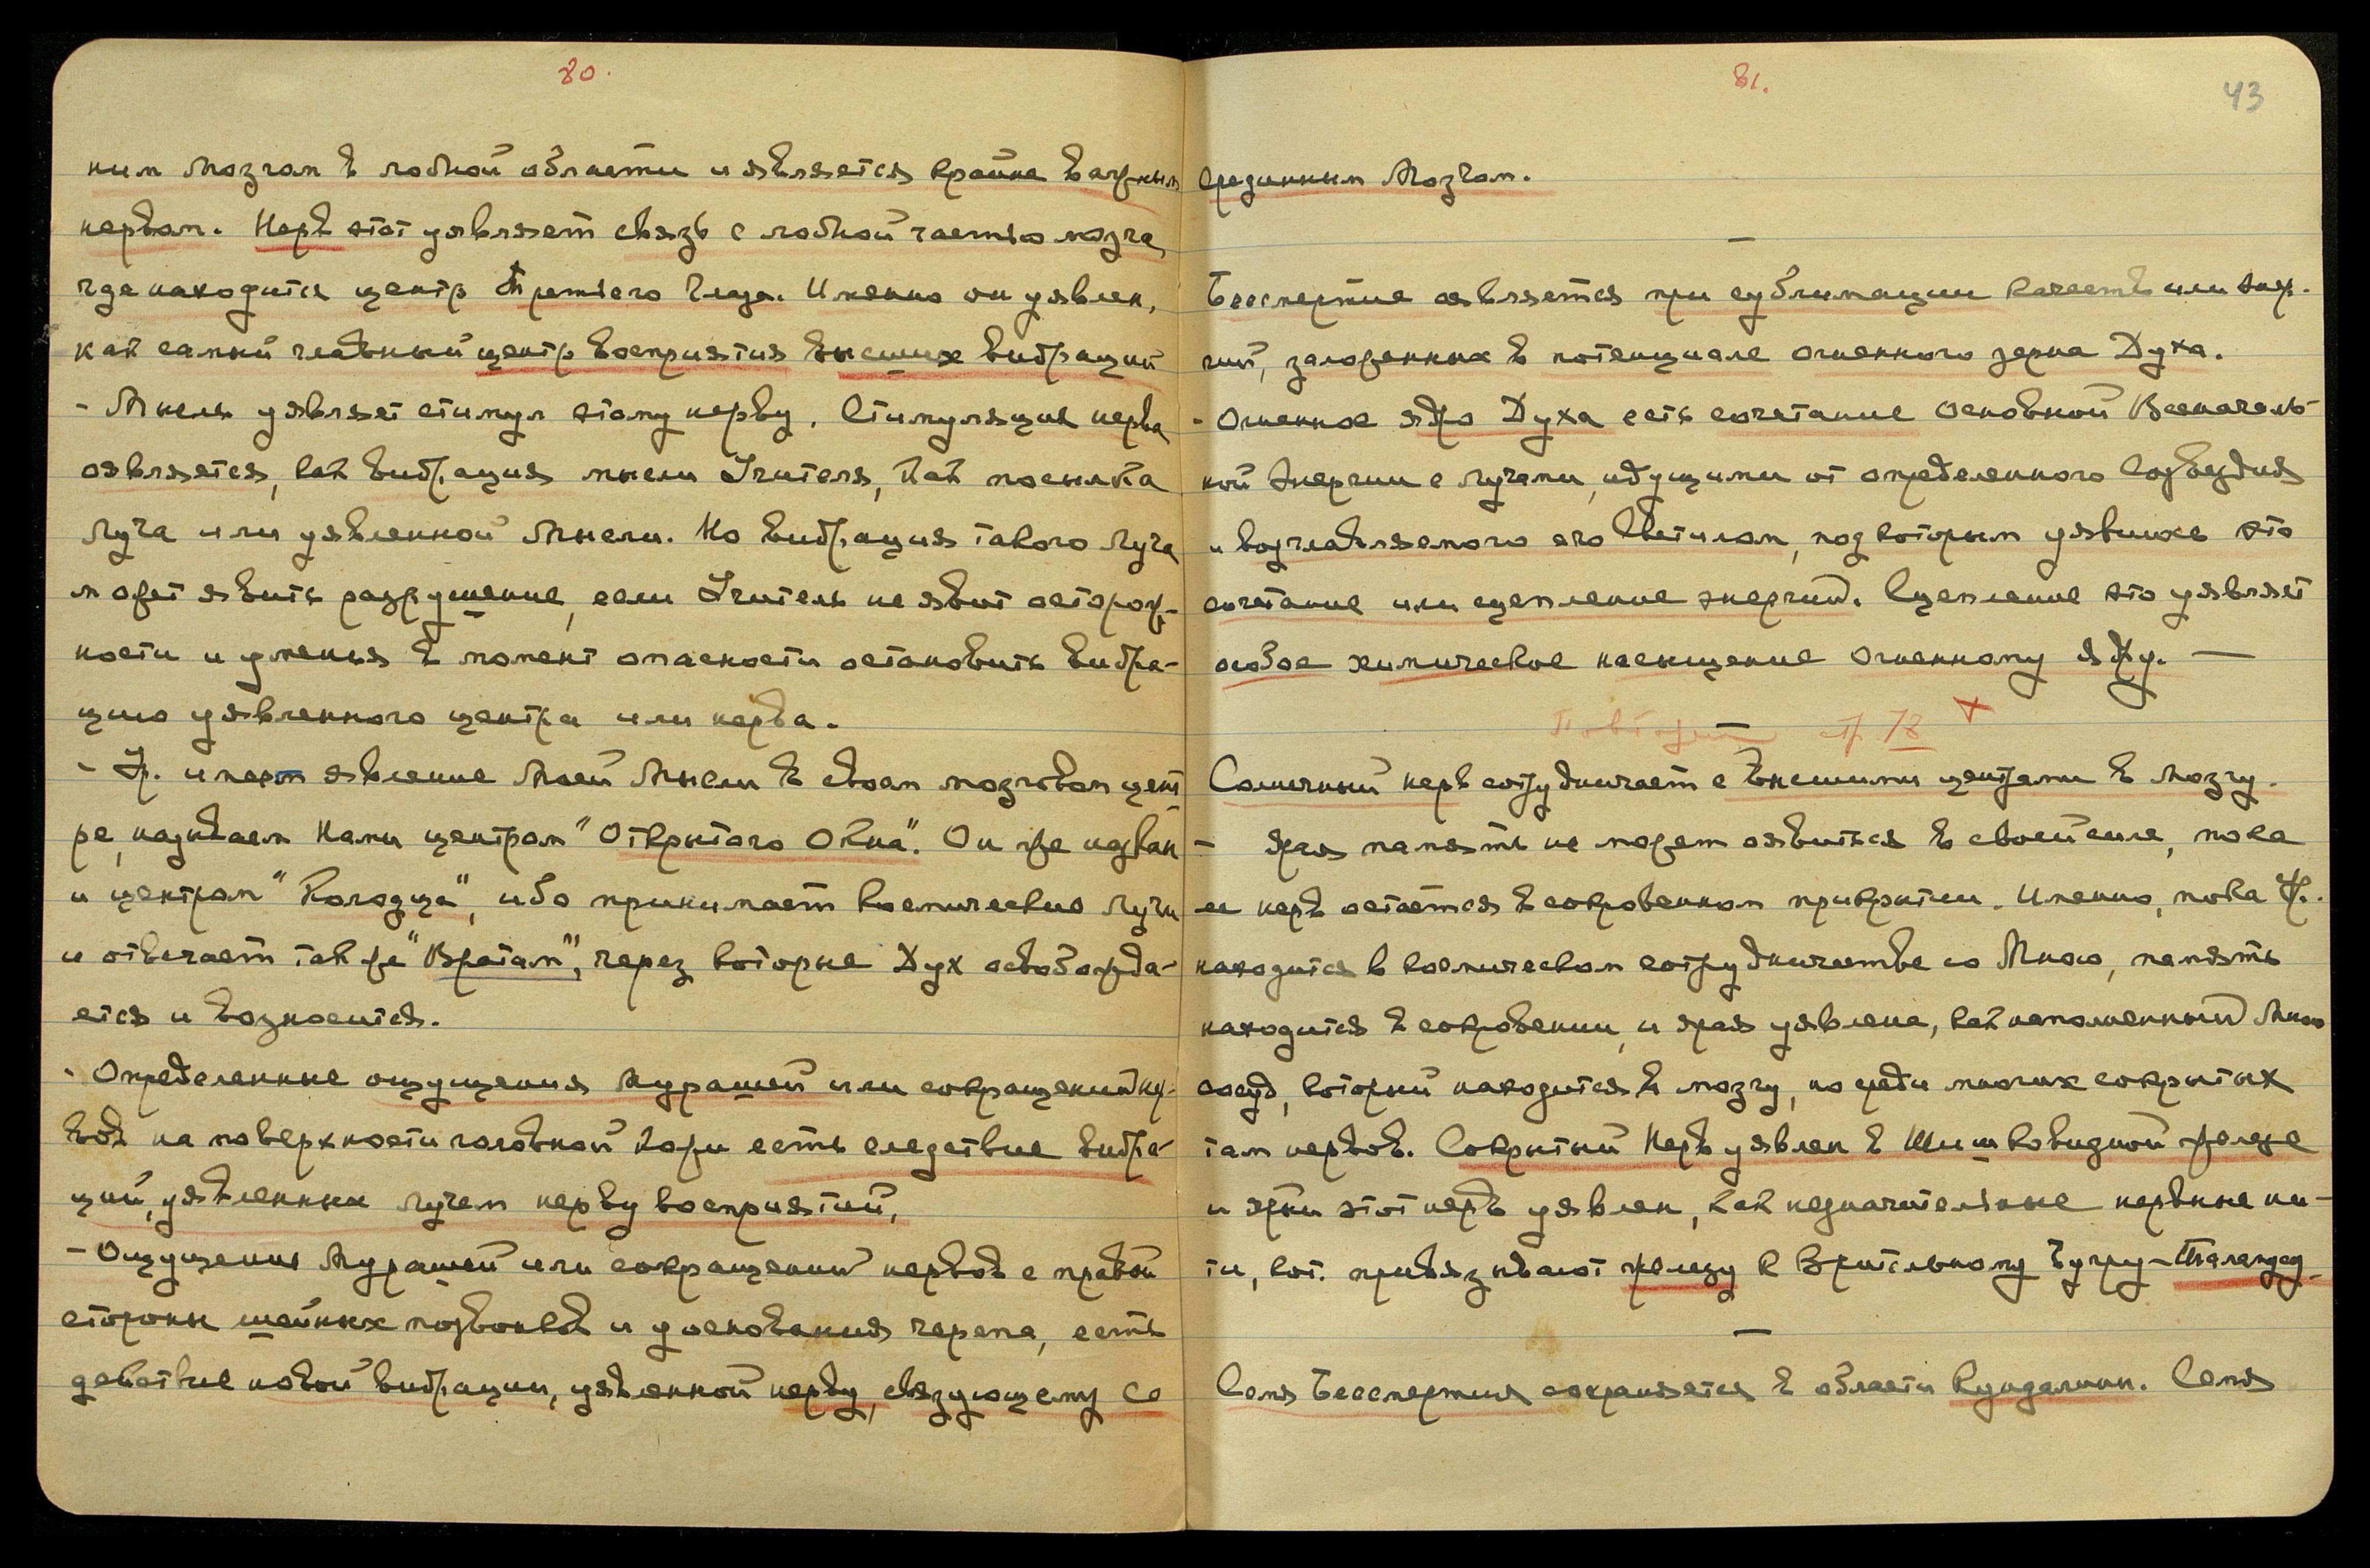 80.
ним мозгом в лобной области и является крайне важным
нервом. Нерв этот уявляет связь с лобной частью мозга,
где находится центр Третьего Глаза. Именно он уявлен,
как самый главный центр восприятия высших вибраций
- Мысль уявляет стимул этому нерву. Стимуляция нерва
оявляется, как вибрация мысли Учителя, как посылка
Луча или уявленной Мысли. Но вибрация такого Луча
может явить разрушение, если Учитель не явит осторож-
ности и уменья в момент опасности остановить вибра-
цию уявленного центра или нерва.
- Ур. имеет явление Моей Мысли в своем мозговом цент
ре, называем Нами центром "Открытого Окна". Он же назван
и центром "Колодца", ибо принимает Космические Лучи
и отвечает также "Вратам", через которые Дух освобожда-
ется и возносится.
- Определенные ощущения мурашей или сокращений нер-
вов на поверхности головной коры есть следствие вибра-
ций, уявленных лучем нерву восприятий,
- Ощущения Мурашей или сокращений нервов с правой
стороны шейных позвонков и у основания черепа, есть
действие новой вибрации, уявленной нерву, связующему со
81.
43
срединным Мозгом.
—
Бессмертие оявляется при сублимации качеств или энер-
гий, заложенных в потенциале огненного зерна Духа.
- Огненное ядро Духа есть сочетание основной Всеначаль-
ной Энергии с лучами, идущими от определенного Созвездия
и возглавляемого его Светилом, под которым уявилось это
сочетание или сцепление энергий. Сцепление это уявляет
особое химическое насыщение огненному ядру. —
Повторить стр. 78 +
Солнечный нерв сотрудничает с высшими центрами в мозгу.
- Ярая память не может оявиться в своей силе, пока
ее нерв остается в сокровенном прикрытии. Именно, пока Ур.
находится в космическом сотрудничестве со Мною, память
находится в сокровении, и ярая уявлена, как наполненный Мною
сосуд, который находится в мозгу, но среди многих сокрытых
там нервов. Сокрытый Нерв уявлен в Шишковидной железе
и яры этот нерв уявлен, как незначительные нервные ни-
ти, кот. привязывают железу к Зрительному Бугру - Таламусу
—
Семя Бессмертия сохраняется в области Кундалини. Семя